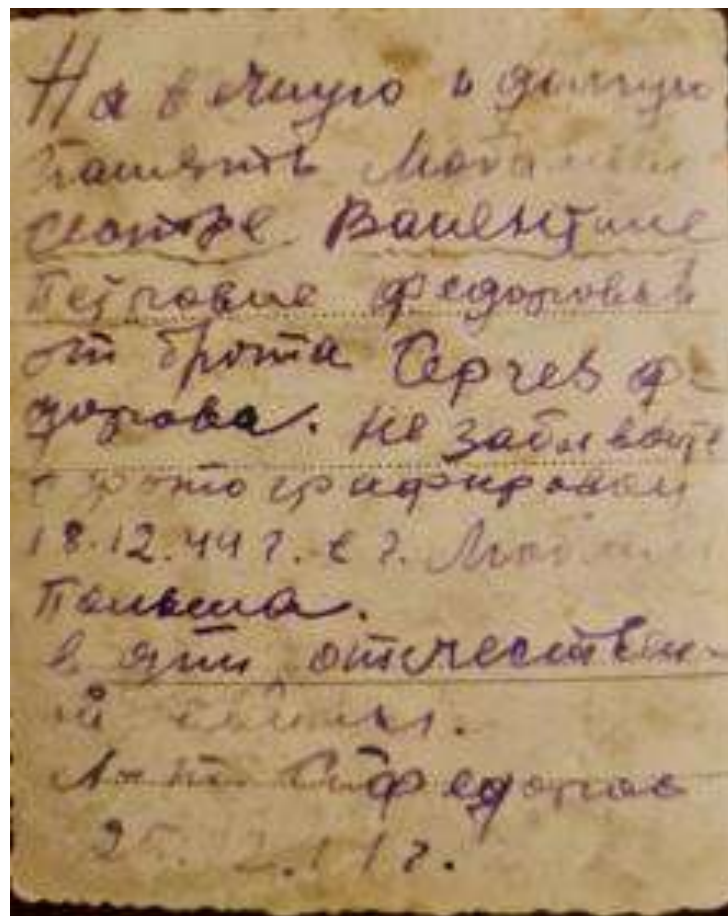 На вечную и долгую
память Любимой
сестре Валентине
Петровне Федоровой
от брата Сергея Фе-
дорова. Не забывайте
сфотографирован
18.12.44 г. в г. Люблин
Польша.
в дни отечествен-
ой войны.
С. Федоров